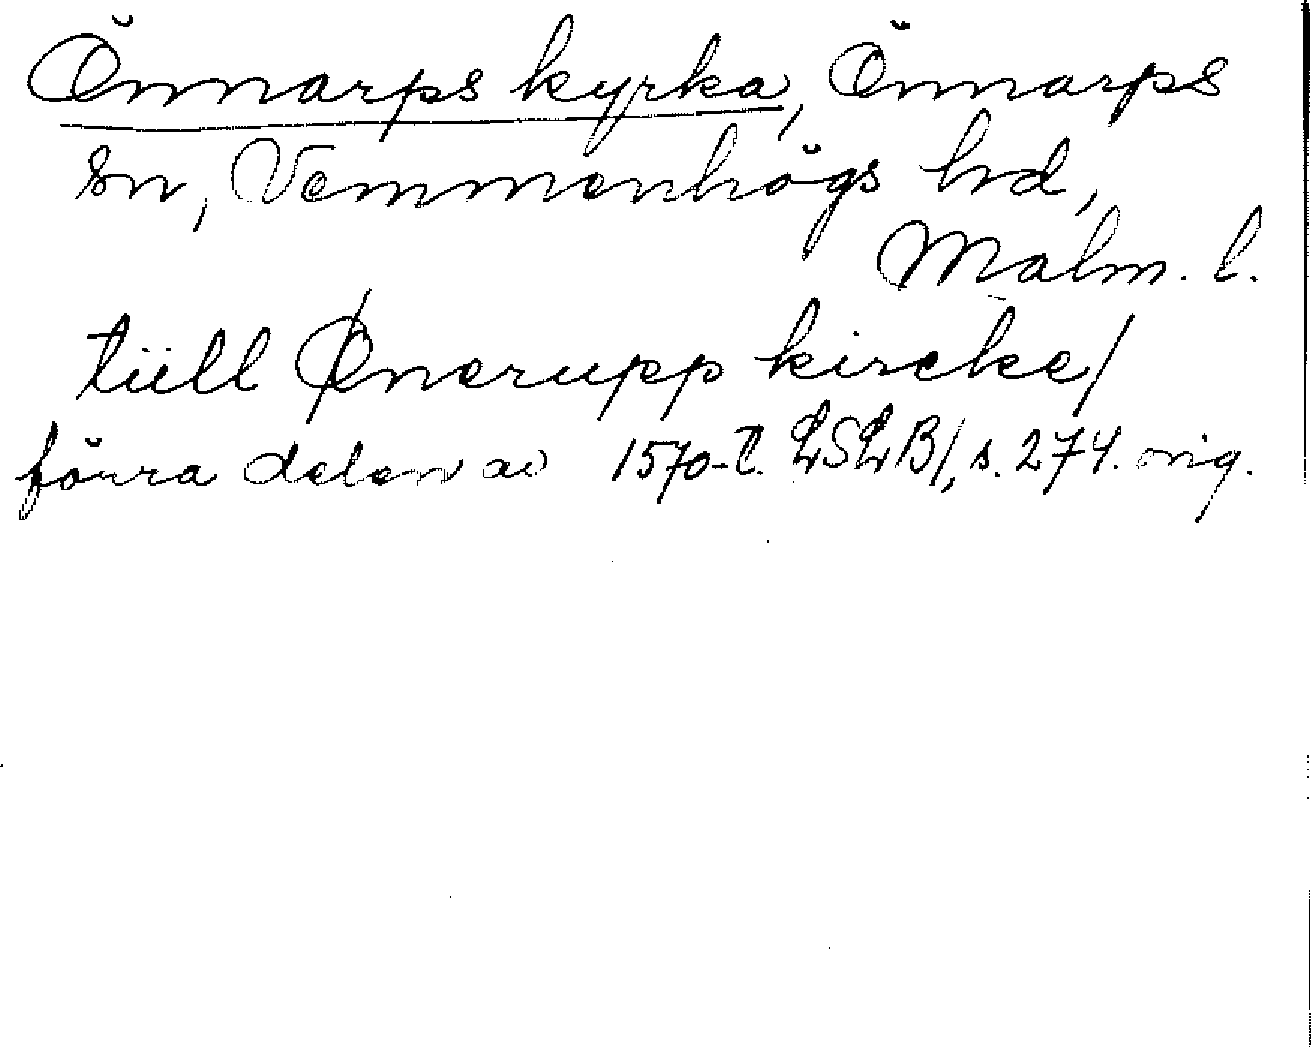 Önnarps kyrka, Önnarps
sn, Vemmenhögs hd,
Malm. l.
tüll Ønerupp kircke/
förra delen av 1570-t. LSLB/, s. 274. orig.